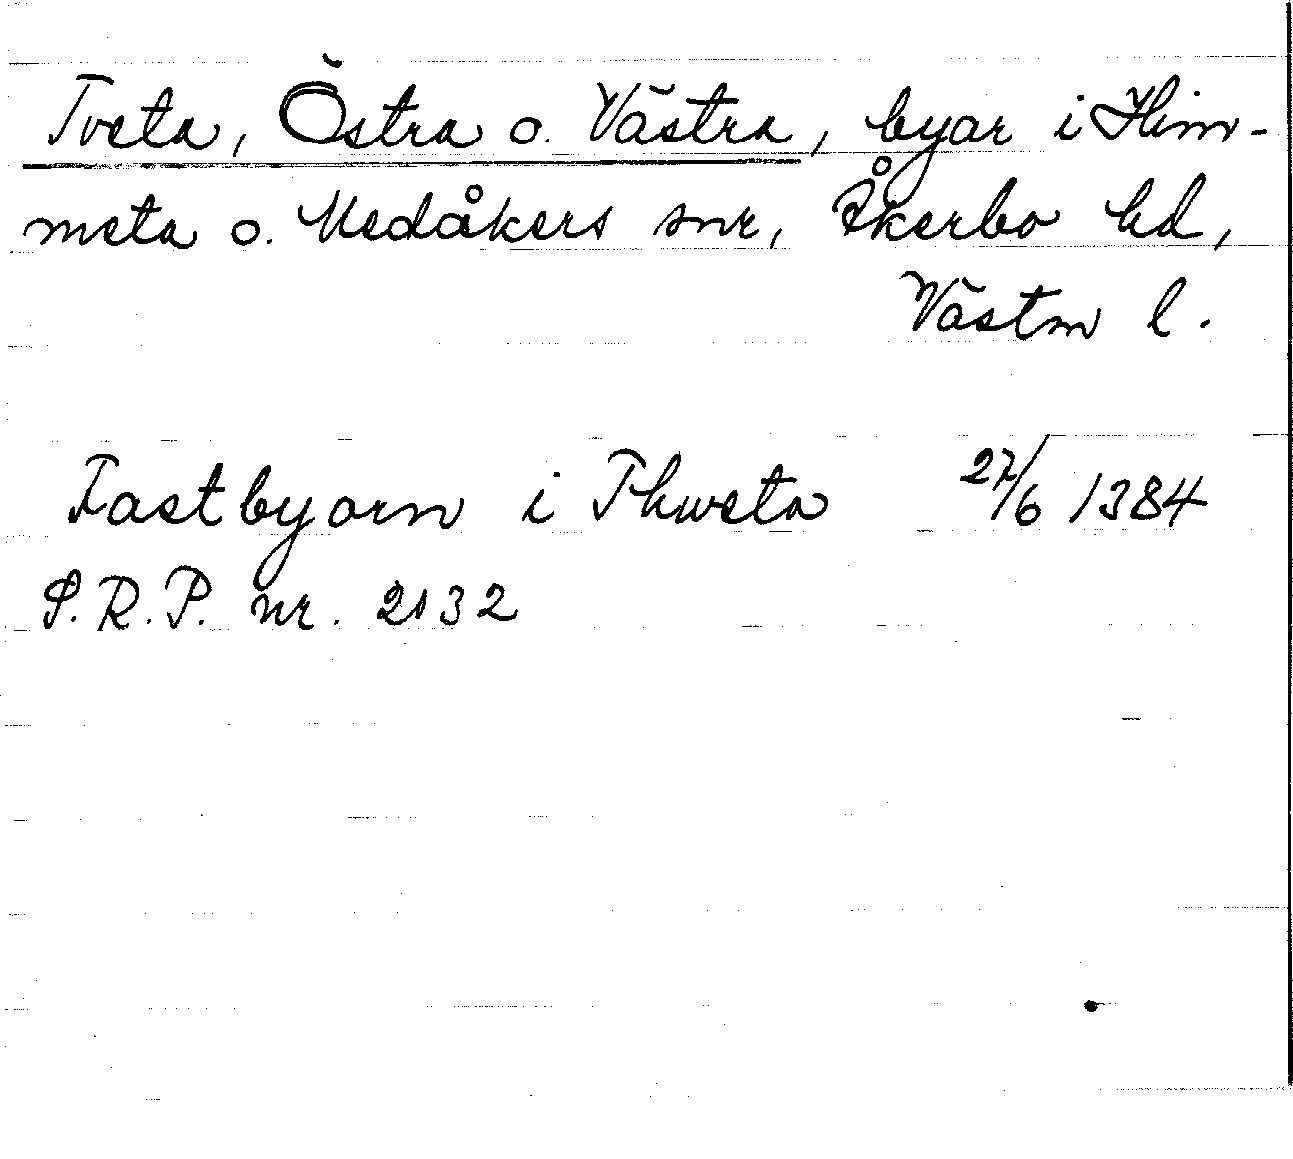 Tveta, Östra o. Västra, byar i Him-
meta o. Medåkers snr, Åkerbo hd,
Västm l.
Fastbyorn i Thweta 27/6 1384
S.R.P. nr. 2132